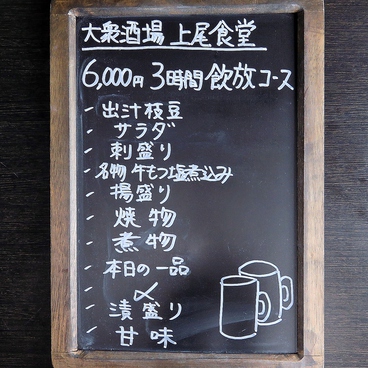 大衆酒場 上尾食堂
6,000円 3時間 飲放コース
- 出汁枝豆
- サラダ
- 刺盛り
- 名物 牛もつ塩煮込み
- 揚盛り
- 焼物
- 煮物
- 本日の一品
- 〆
- 漬盛り
- 甘味